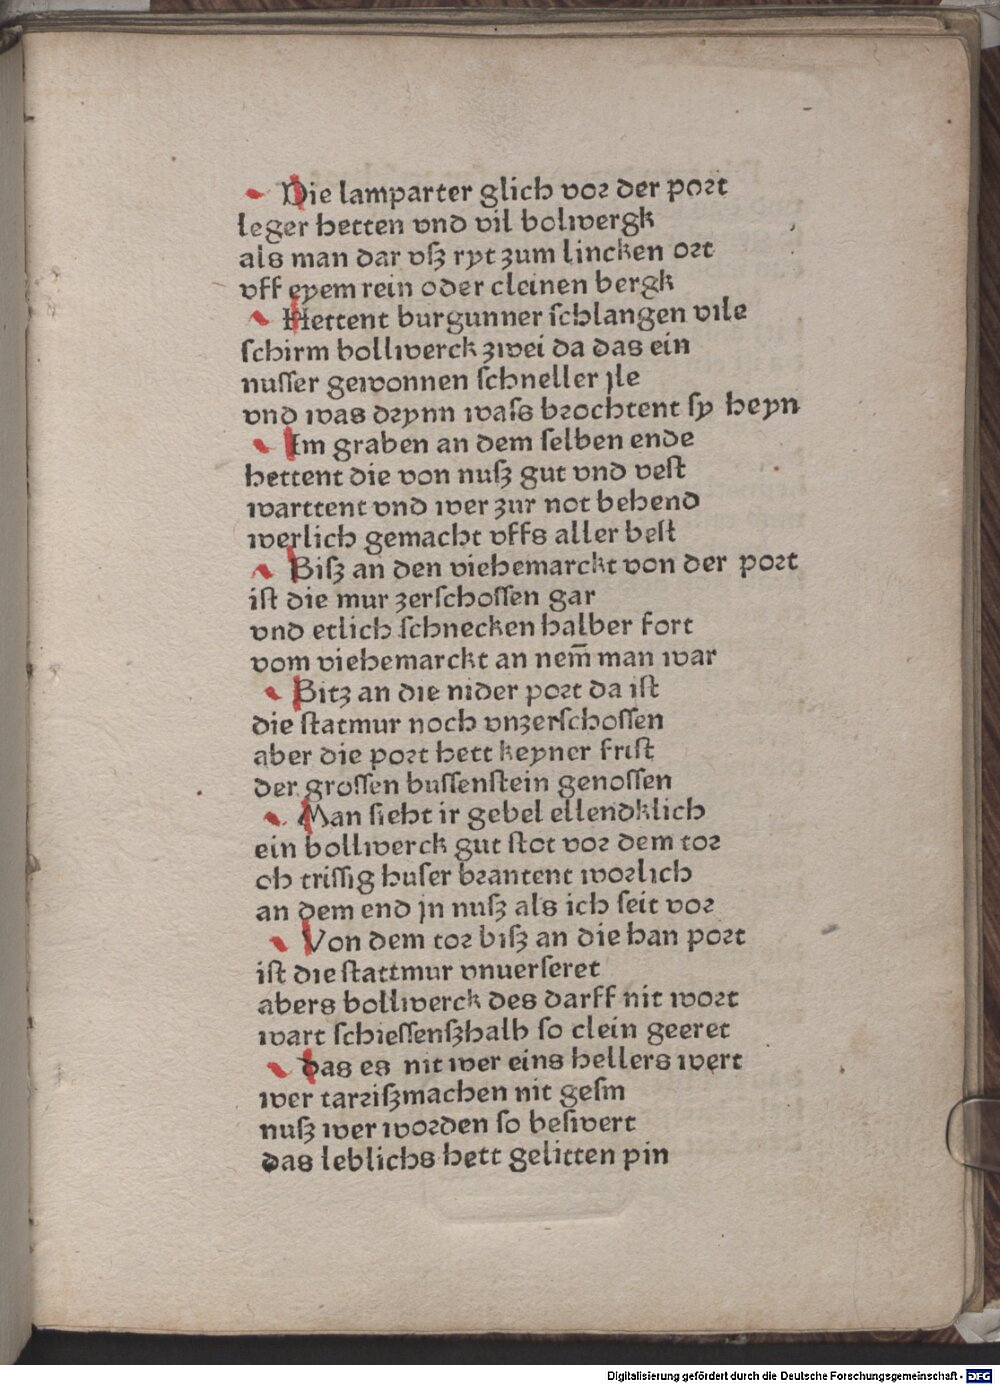 Die lamparter glich vor der port
leger hetten vnd vil bolwergk
als man dar vſz ryt zum lincken ort
vff eyem rein oder cleinen bergk
Hettent burgunner ſchlangen vile
ſchirm bollwerck zwei da das ein
nuſſer gewonnen ſchneller jle
vnd was drynn waſs brochtent ſy heyn
Im graben an dem ſelben ende
hettent die von nuſz gut vnd veſt
warttent vnd wer zur not behend
werlich gemacht vffs aller beſt
Biſz an den viehemarckt von der port
iſt die mur zerſchoſſen gar
vnd etlich ſchnecken halber fort
vom viehemarckt an nem̄ man war
Bitz an die nider port da iſt
die ſtatmur noch vnzerſchoſſen
aber die port hett keyner friſt
der groſſen buſſenſtein genoſſen
Man ſieht ir gebel ellendklich
ein bollwerck gut ſtot vor dem tor
ob triſſig huſer brantent worlich
an dem end jn nuſz als ich ſeit vor
Von dem tor biſz an die han port
iſt die ſtattmur vnuerſeret
abers bollwerck des darff nit wort
wart ſchieſſenſzhalb ſo clein geeret
das es nit wer eins hellers wert
wer tarriſzmachen nit geſin
nuſz wer worden ſo beſwert
das leblichs hett gelitten pin
Digitalisierung gefördert durch die Deutsche Forschungsgemeinschaft - DFG